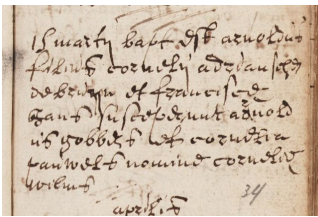 18 martij bapt est arnoldus
filius cornelij adriansche
de bruijn et francisce
hans susceperunt arnold
us gobbers et cornelia
pauwels nomine cornelie
wilms
34
aprilis